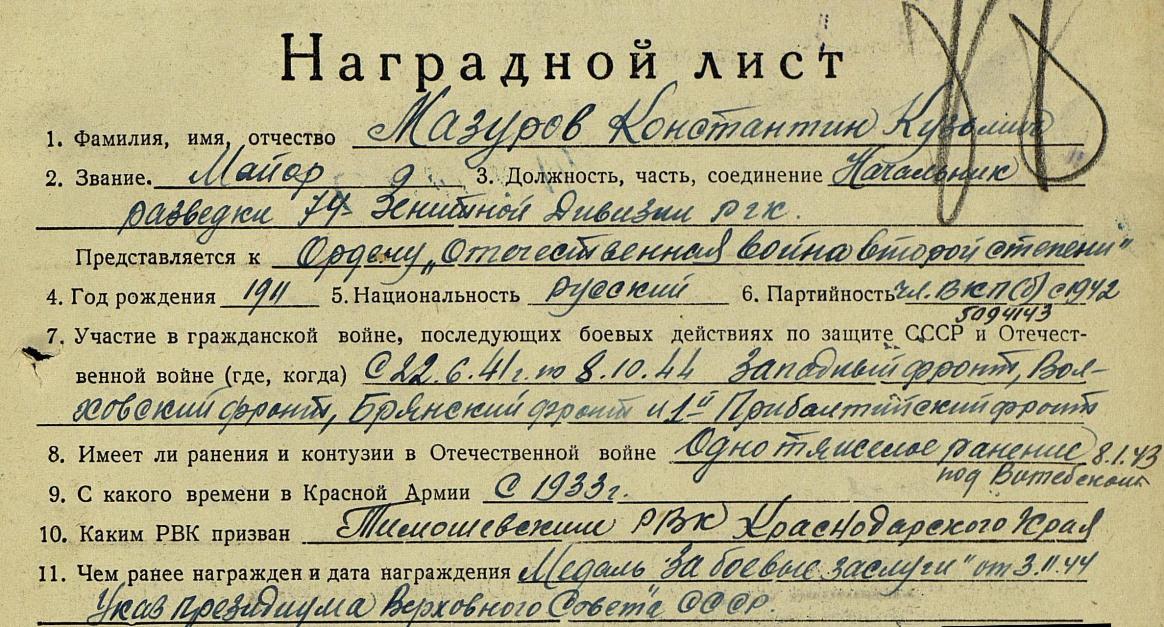 Наградной лист
1. Фамилия, имя, отчество Мазуров Константин Кузьмич
2. Звание. Майор 3. Должность, часть, соединение Начальник
разведки 74й Зенитной Дивизии РГК.
Представляется к Ордену „Отечественная война второй степени"
4. Год рождения 1911 5. Национальность русский 6. Партийность чл. ВКП(б) с 1942
5094143
7. Участие в гражданской войне, последующих боевых действиях по защите СССР и Отечест-
венной войне (где, когда) С 22.6.41г. по 8.10.44 Западный фронт, Вол-
ховский фронт, Брянский фронт и 1й Прибалтийский фронт
8. Имеет ли ранения и контузии в Отечественной войне Одно тяжелое ранение 8.1.43
под Витебском
9. С какого времени в Красной Армии С 1933г.
10. Каким РВК призван Тимошевским РВК Краснодарского Края
11. Чем ранее награжден и дата награждения Медаль "За боевые заслуги" от 3.11.44
Указ президиума Верховного Совета СССР.